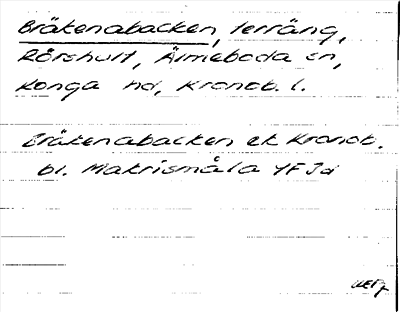 Bräkenabacken, terräng,
Rörshult, Älmeboda sn,
Konga hd, Kronob. l.
Bräkenabacken ek Kronob.
bl. Makrismåla 4F Jd